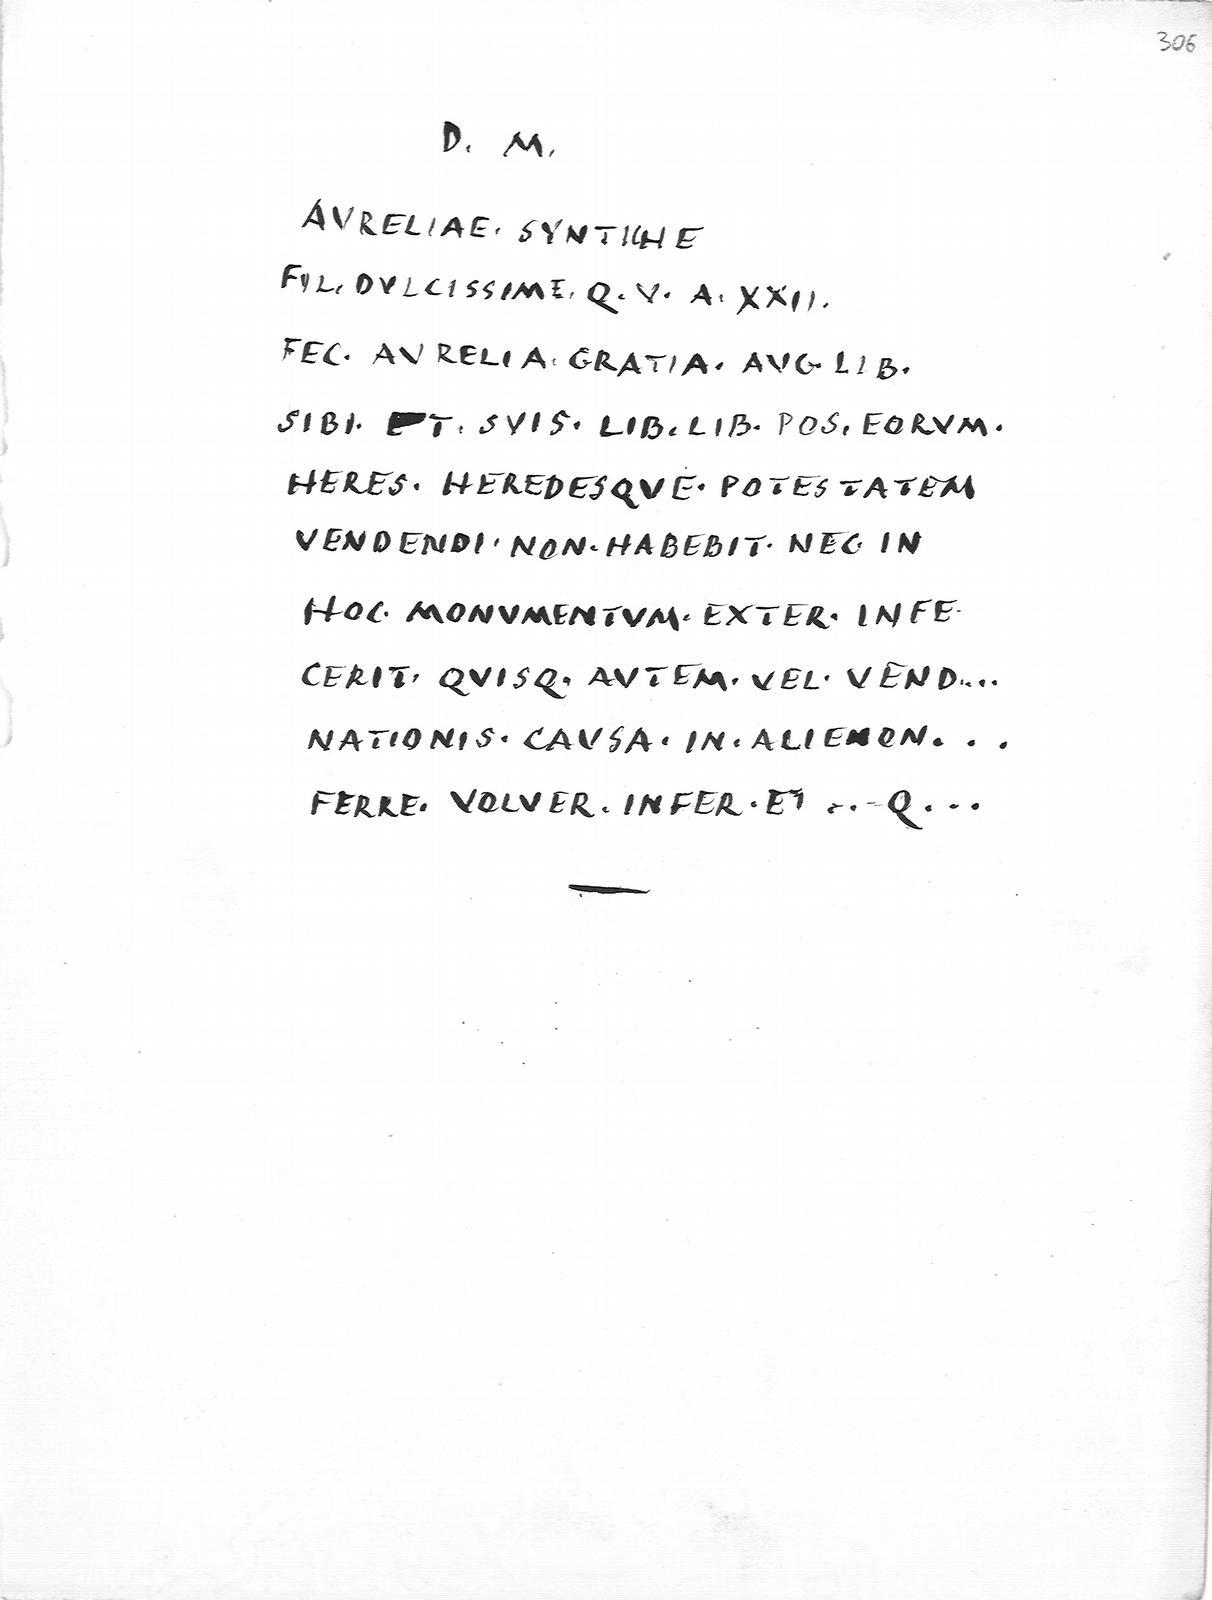 306
D. M.
AVRELIAE. SYNTICHE
FIL. DVLCISSIME. Q. V. A. XXII.
FEC. AVRELIA. GRATIA. AVG. LIB.
SIBI. ET. SVIS. LIB. LIB. POS. EORVM.
HERES. HEREDESQVE. POTESTATEM
VENDENDI. NON. HABEBIT. NEC IN
HOC. MONVMENTVM. EXTER. INFE
CERIT. QVISQ. AVTEM. VEL. VEND...
NATIONIS. CAVSA. IN. ALIENON. . .
FERRE. VOLVER. INFER. ET ... Q...